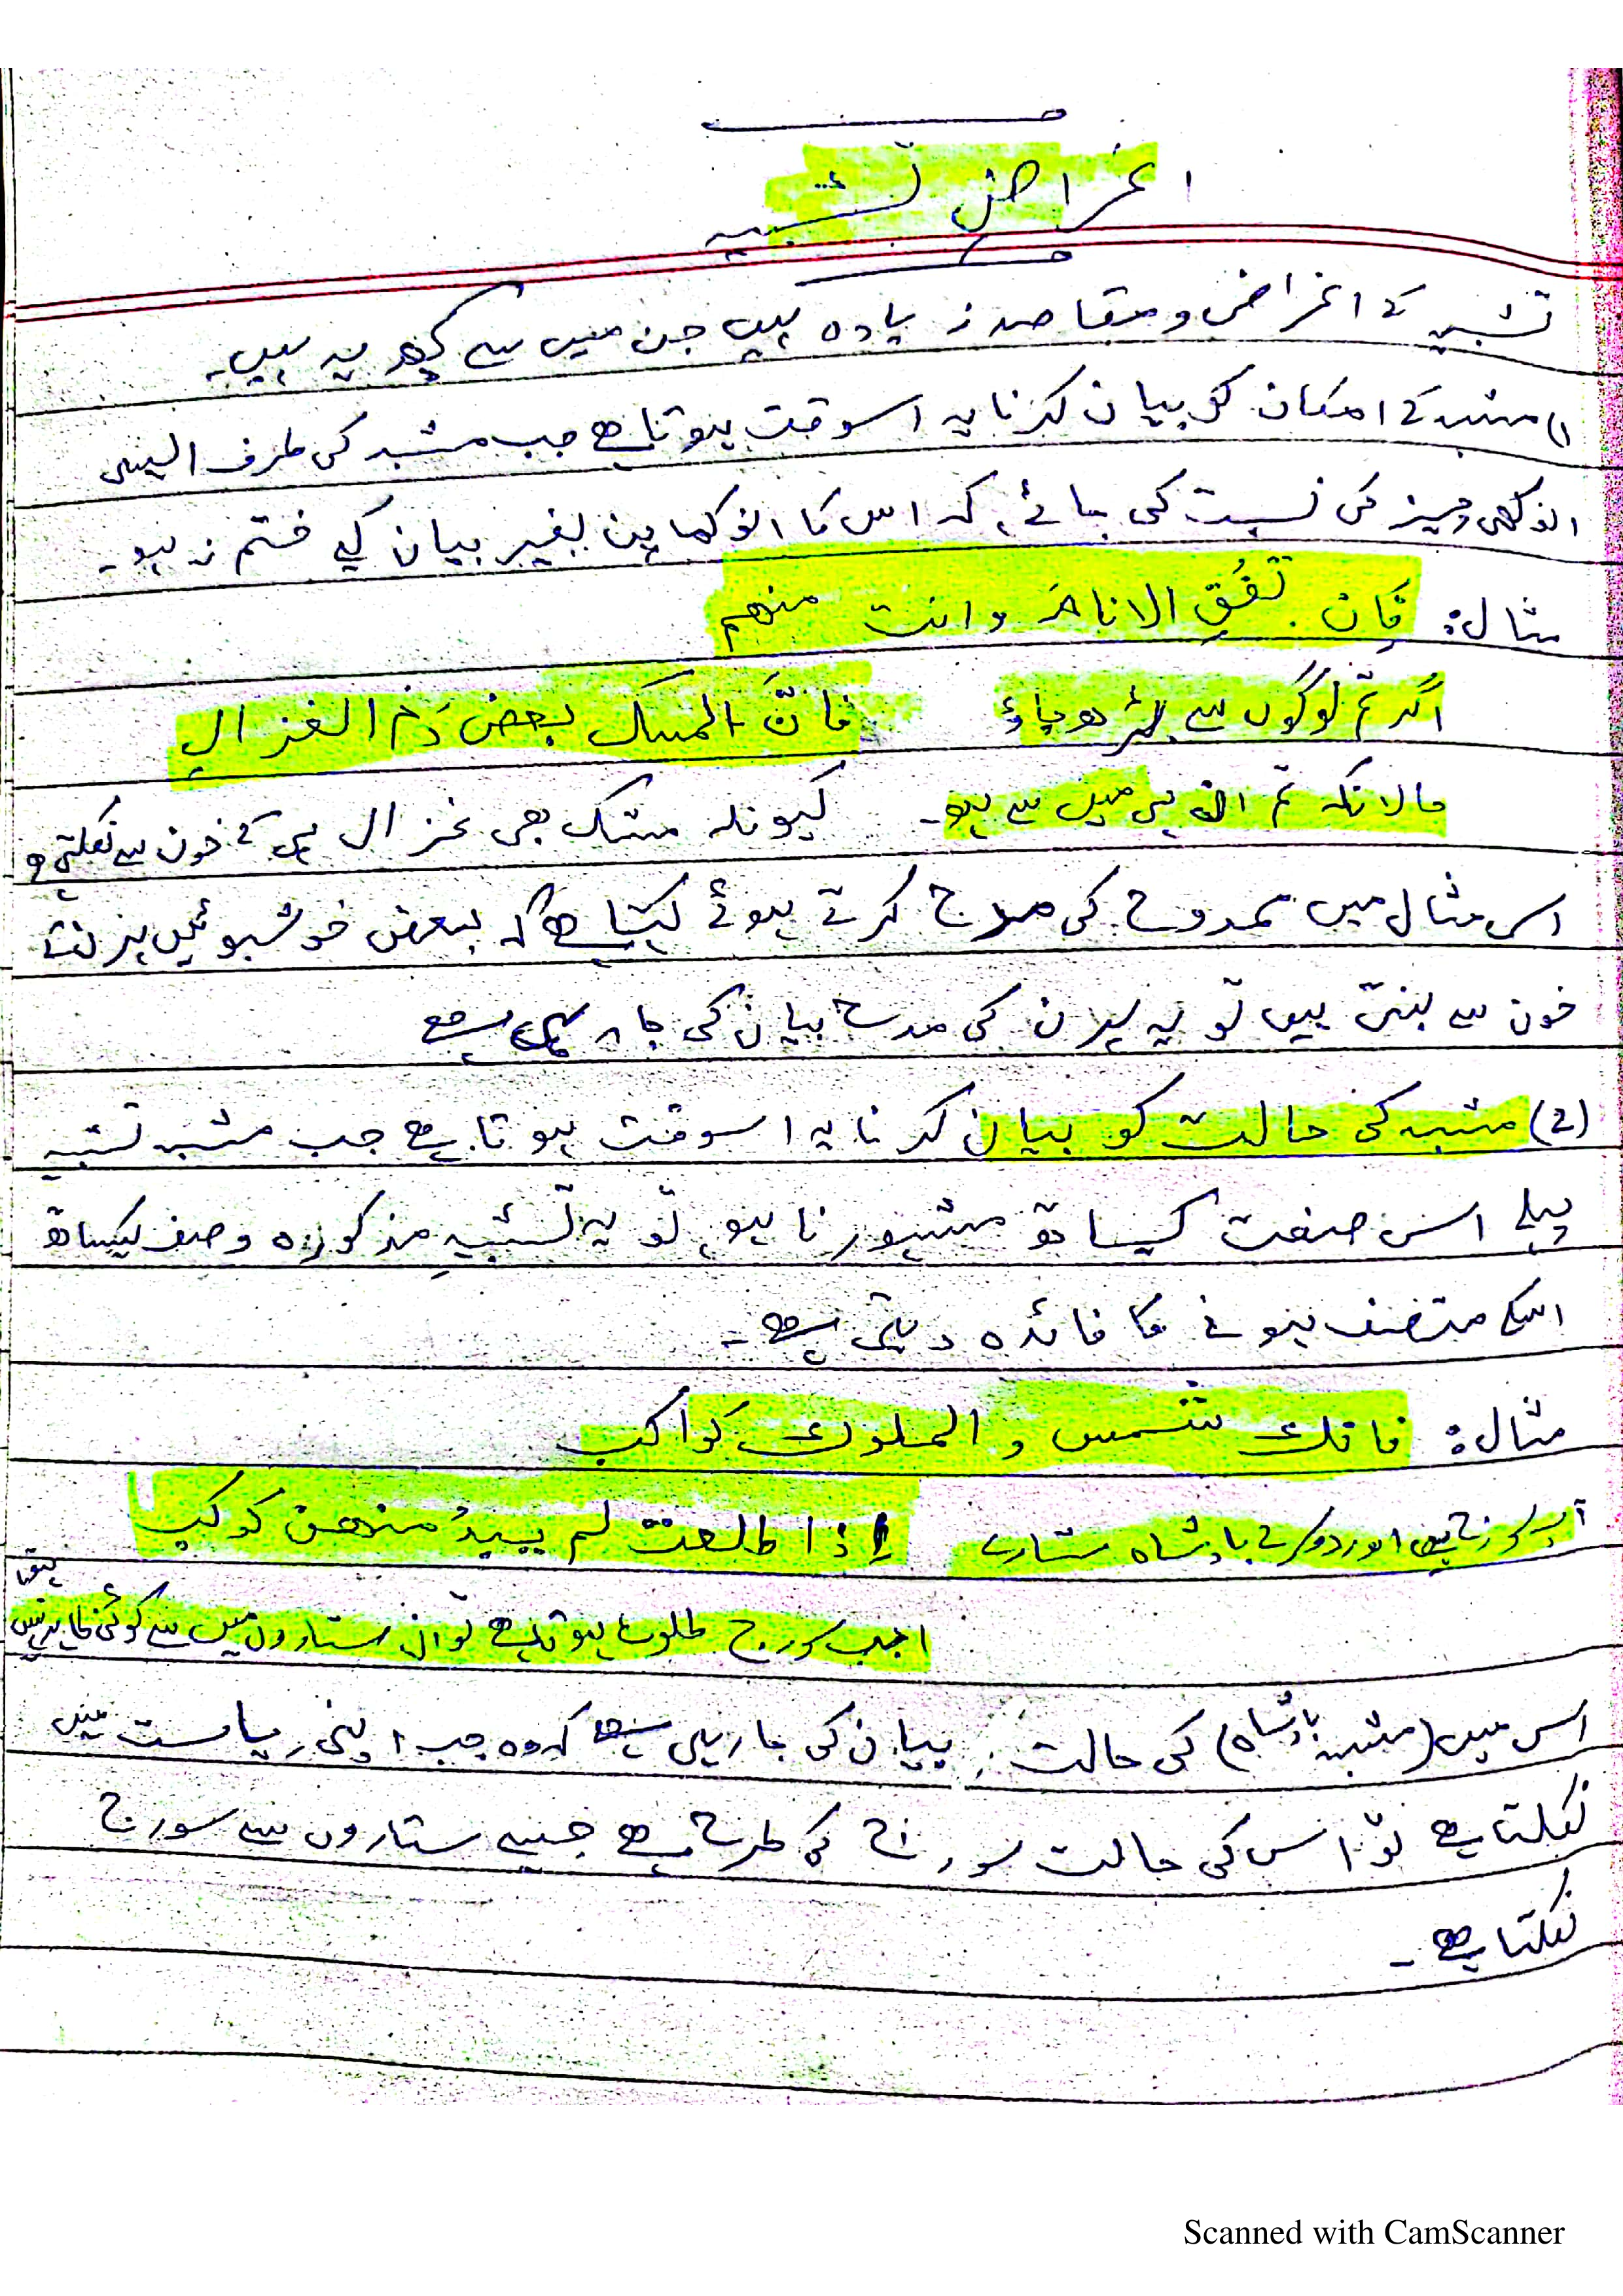 اغراض تشبیہ
تشبیہ کے اغراض و مقاصد زیادہ ہیں جن میں سے کچھ یہ ہیں۔
(1 مشبہ کے امکان کو بیان کرنا یہ اسوقت ہوتا ہے جب مشبہ کی طرف ایسی
انوکھی چیز کی نسبت کی جائے، کہ اس کا انوکھا پن بغیر بیان کیے ختم نہ ہو۔
مثال: فَاِن تَفُقِ الانامَ و انت منھم
اگر تم لوگوں سے بہتر ھو جاؤ فانَّ المسک بعض دَمِ الغزالِ
حالانکہ تم ان ہی میں سے ہو۔ کیونکہ مشک بھی غزال ہی کے خون سے نکلتی
اس مثال میں ممدوح کی مدح کرتے ہوئے کہتا ہے کہ بعض خوشبوئیں ہرن کے
خون سے بنتی ہیں تو یہ ہرن کی مدح بیان کی جا رہی ہے
(2) مشبہ کی حالت کو بیان کرنا یہ اسوقت ہوتا ہے جب مشبہ تشبیہ
پہلے اس صفت کیساتھ مشہور نا ہو، تو یہ تشبیہ مذکورہ وصف کیساتھ
اسکے متصف ہونے کا فائدہ دیتی ہے۔
مثال: فانک شمس و الملوک کواکب
آپ سورج ہیں اور دوسرے بادشاہ ستارے اِذا طلعت لم یبدُ منھن کوکب
جب سورج طلوع ہوتا ہے تو ان ستاروں میں سے کوئی ظاہر نہیں ہوتا
اس میں (مشبہ بادشاہ) کی حالت بیان کی جا رہی ہے کہ وہ جب اپنی ریاست میں
نکلتا ہے تو اس کی حالت سورج کی طرح ہے جیسے ستاروں سے سورج
نکلتا ہے۔
Scanned with CamScanner